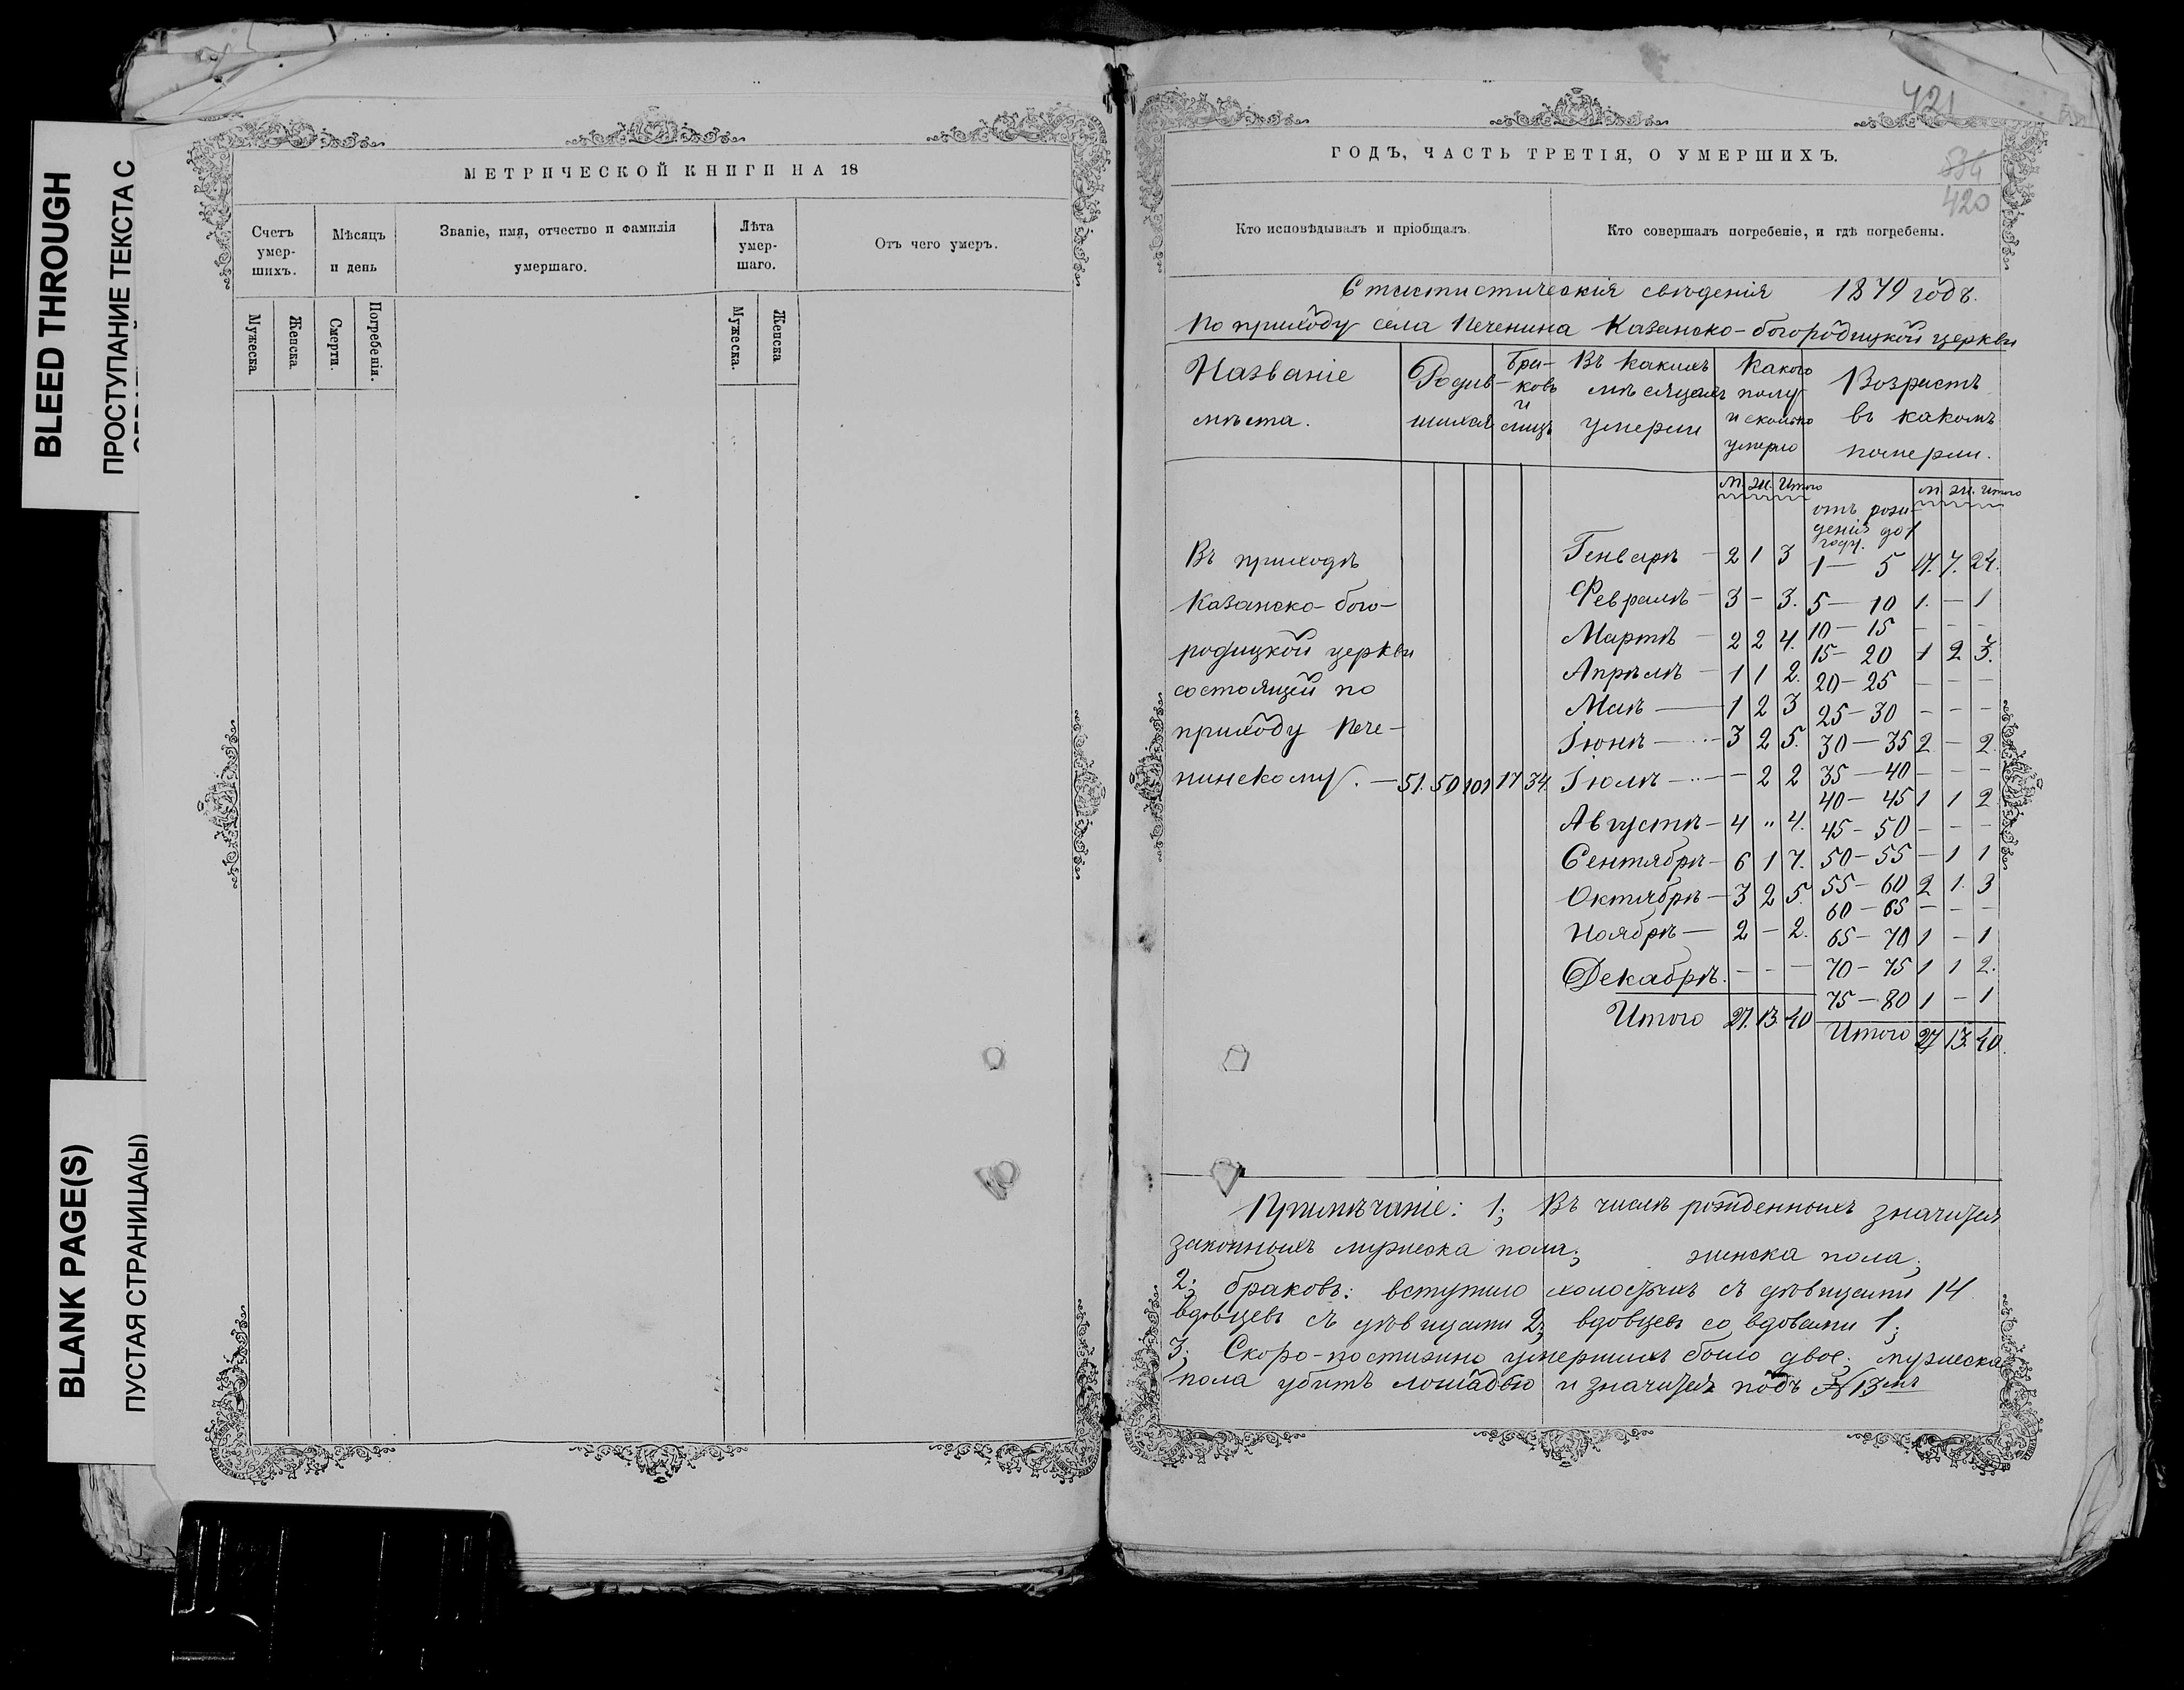 BLEED THROUGH
ПРОСТУПАНИЕ ТЕКСТА С
BLANK PAGE(S)
ПУСТАЯ СТРАНИЦА(Ы)
МЕТРИЧЕСКОЙ КНИГИ НА 18
Счетъ умер-шихъ.
Мѣсяцъ и день
Званіе, имя, отчество и фамилія умершаго.
Лѣта умер-шаго.
Отъ чего умеръ.
Мужеска.
Женска
Смерти.
Погребенія.
Мужеска.
Женска
421
ГОДЪ, ЧАСТЬ ТРЕТІЯ, О УМЕРШИХЪ.
420
Кто исповѣдывалъ и пріобщалъ.
Кто совершалъ погребеніе, и гдѣ погребены.
Статистическія свѣденія 1879 годъ.
По приходу села Печенина Казанско-богородицкой церкви
Названіе мѣста.
Родив-шихся
Бра-ковъ и лицъ
Въ какихъ мѣсяцахъ умерли
Какого полу и сколько умерло
Возрастъ въ какомъ померли.
М. Ж. Итого
М. Ж. Итого
отъ рож-
денія до 1
году.
Въ приходѣ
Казанско-бого-
родицкой церкви
состоящей по
приходу Пече-
нинскому. — 51. 50 101 17 34.
Генварѣ — 2 1 3
Февралѣ — 3 — 3.
Мартѣ — 2 2 4.
Апрѣлѣ — 1 1 2.
Маѣ — 1 2 3
Іюнѣ — 3 2 5.
Іюлѣ — — 2 2
Августѣ — 4 „ 4.
Сентябрѣ — 6 1 7.
Октябрѣ — 3 2 5.
Ноябрѣ — 2 — 2.
Декабрѣ. — — —
Итого 27. 13. 40
1 — 5 17. 7. 24.
5 — 10 1. — 1
10 — 15 — — —
15 — 20 1 2 3.
20 — 25 — — —
25 — 30 — — —
30 — 35 2 — 2.
35 — 40 — — —
40 — 45 1 1 2
45 — 50 — — —
50 — 55 — 1 1
55 — 60 2 1. 3
60 — 65 — — —
65 — 70 1 — 1
70 — 75 1 1 2.
75 — 80 1 — 1
Итого 27 13. 40.
Примѣчаніе: 1; Въ числѣ рожденныхъ значится
законныхъ мужеска пола; женска пола;
2; браковъ: вступило холостыхъ съ дѣвицами 14
вдовцевъ съ дѣвицами 2; вдовцевъ со вдовами 1;
3; Скоро-постижно умершихъ было двое; мужеска
пола убитъ лошадью и значится подъ № 13мъ